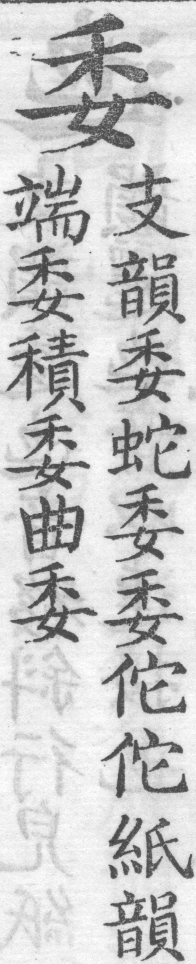 委
支韻委蛇委委佗佗紙韻
端委積委曲委